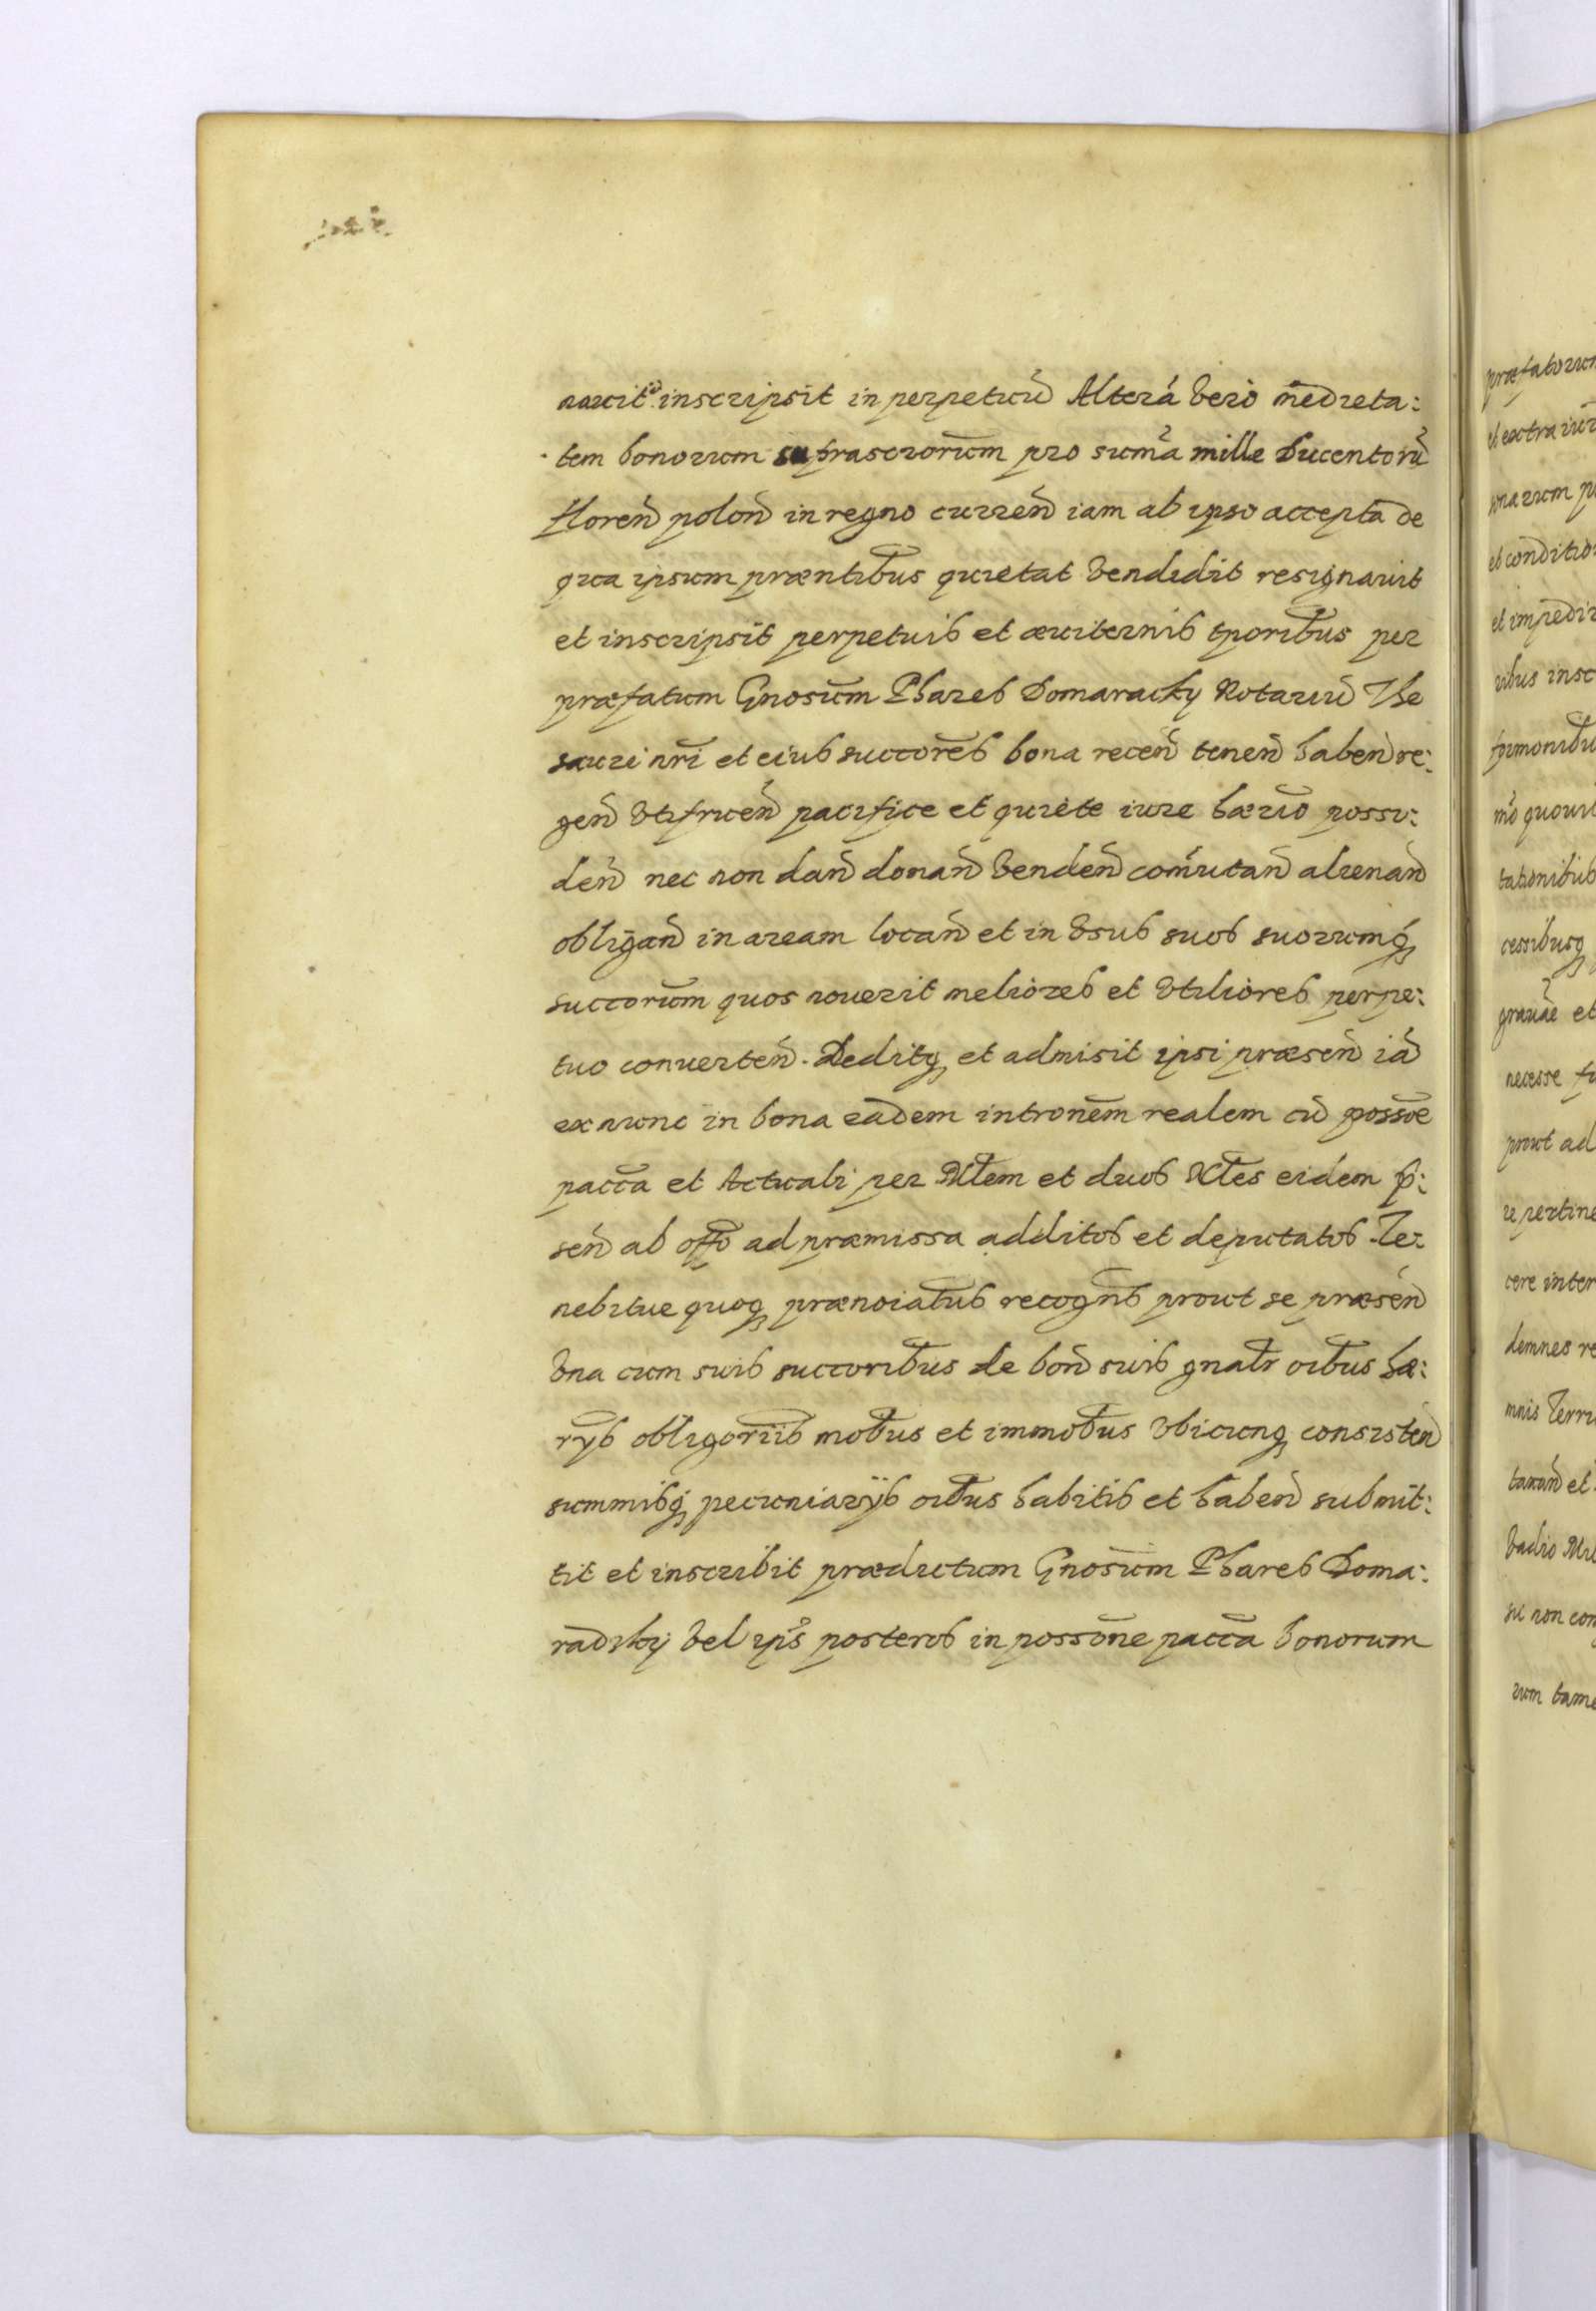 nauit inscripsit in perpetuū Alterá vero medieta:
tem bonorum suprascrorum pro suma mille Ducentorū
floreñ poloñ in regno curreñ iam ab ipso accepta de
qua ipsum præntibus quietat vendidit resignauit
et inscripsit perpetuis et æuiternis tporibus per
præfatum Gnosum Phares Domaracky Notariū The
sauri nri et eius succores bona receñ teneñ habeñ re:
geñ vtifrueñ pacifice et quiete iure hærio possi:
deñ nec non dañ donañ vendeñ comutañ alienañ
obligañ in aream locañ et in vsus suos suorumq
succorum quos nouerit meliores et vtiliores perpe:
tuo conuerteñ. Deditq et admisit ipsi præseñ iā
ex nunc in bona eadem intronem realem cū possoe
pacca et Actuali per Mlem et duos Nles eidem p:
señ ab offo ad præmissa additos et deputatos. Te:
nebitue quoq prænoiatus recogns prout se præseñ
vna cum suis succoribus de boñ suis gnalr oibus hæ:
rys obligoriis mobus et immobus vbicunq consisteñ
summisq pecuniarijs oibus habitis et habeñ submit:
tit et inscribit prædictum Gnosum Phares Doma:
radzky vel ips posteros in possone pacca bonorum
præfatorum
et extra iu
et conditio
et impedi
ribus insc
mo quouis
tationibus
cessibusq
grauae et
necesse fu
prout ad
re pertine
cere inter
demnes re
mnis Terri
taxañ et
vadio Mi
se non con
rum tame